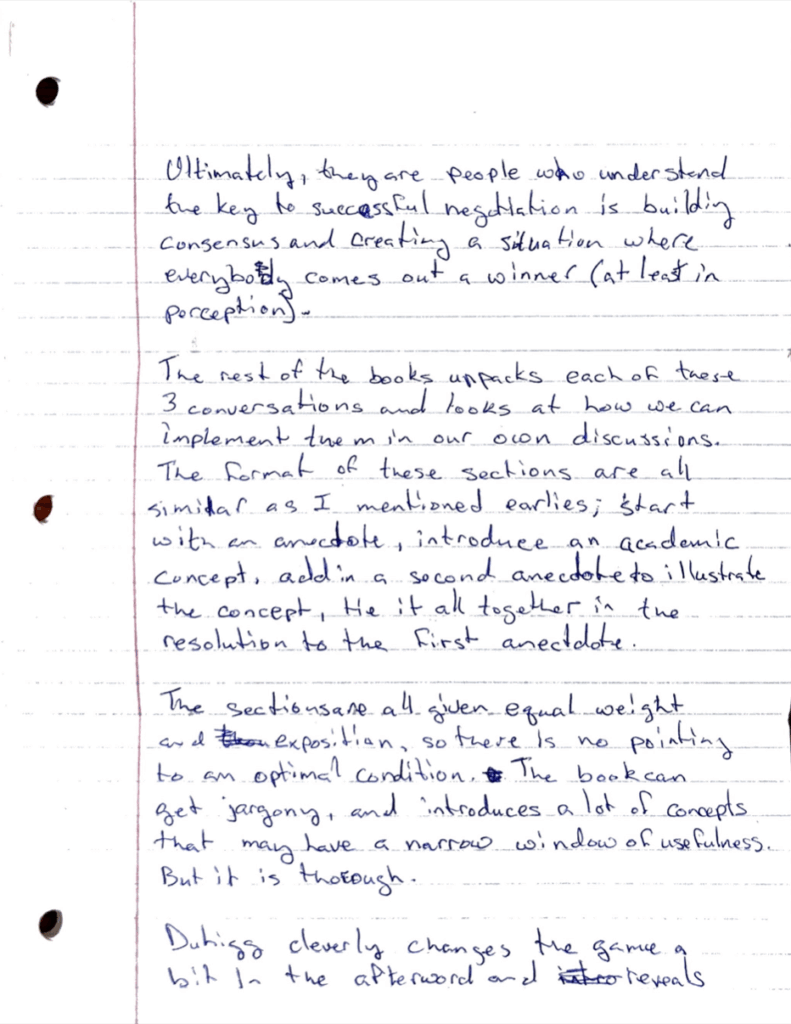 Ultimately, they are people who understand
the key to successful negotiation is building
consensus and creating a situation where
everybody comes out a winner (at least in
perception).
The rest of the books unpacks each of these
3 conversations and looks at how we can
implement them in our own discussions.
The format of these sections are all
similar as I mentioned earlies; start
with an anecdote, introduce an academic
concept, add in a second anecdote to illustrate
the concept, tie it all together in the
resolution to the first anectdote.
The sections are all given equal weight
and exposition, so there is no pointing
to an optimal condition. The book can
get jargony, and introduces a lot of concepts
that may have a narrow window of usefulness.
But it is thorough.
Duhigg cleverly changes the game a
bit in the afterword and reveals